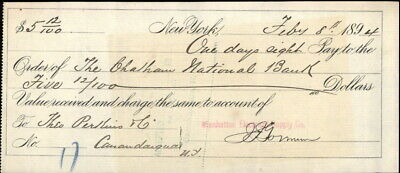 $5 12/100 New York, Feby 8th 1894
One days sight Pay to the
Order of The Chatham National Bank
Five 12/100 Dollars
Value received and charge the same to account of
To Theo Perkins & Co
Manhattan Supply Co.
No. Canandaigua N.Y.